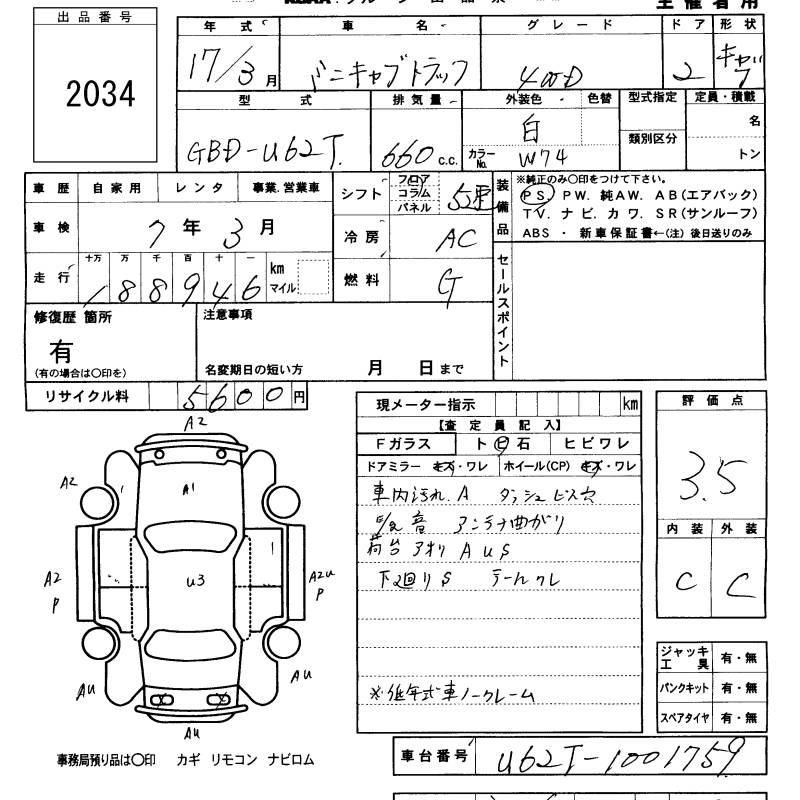 出品番号
2034
年式 車名 グレード ドア 形状
17/3月 ミニキャブトラック 4WD 2 キャブ
型式 排気量 外装色 色替 型式指定 定員・積載
GBD-U62T. 660 c.c. 白 名
カラーNo. W74 類別区分 トン
車歴 自家用 レンタ 事業.営業車
シフト フロア コラム パネル 5速
装備品 ※純正のみ〇印をつけて下さい。
PS. PW. 純AW. AB(エアバック)
TV. ナビ. カワ. SR(サンルーフ)
ABS ・ 新車保証書←(注) 後日送りのみ
車検 7年3月
冷房 AC
走行 十万 万 千 百 十 一 km マイル
188946
燃料 G
セールスポイント
修復歴 箇所 注意事項
有
(有の場合は〇印を) 名変期日の短い方 月 日まで
リサイクル料 5600円
現メーター指示 km
【査定員記入】
Fガラス ト ヒ 石 ヒビワレ
ドアミラー キズ・ワレ ホイール(CP) キズ・ワレ
車内汚れ.A ダッシュビス穴
音 アンテナ曲がり
荷台 アオリ A U S
下廻りS テールワレ
※低年式車ノークレーム
評価点
3.5
内装 外装
C C
A2
A2 A1
U3
A2 P
A2U P
AU AU
AU
ジャッキ工具 有・無
パンクキット 有・無
スペアタイヤ 有・無
事務局預り品は〇印 カギ リモコン ナビロム
車台番号 U62T-1001759